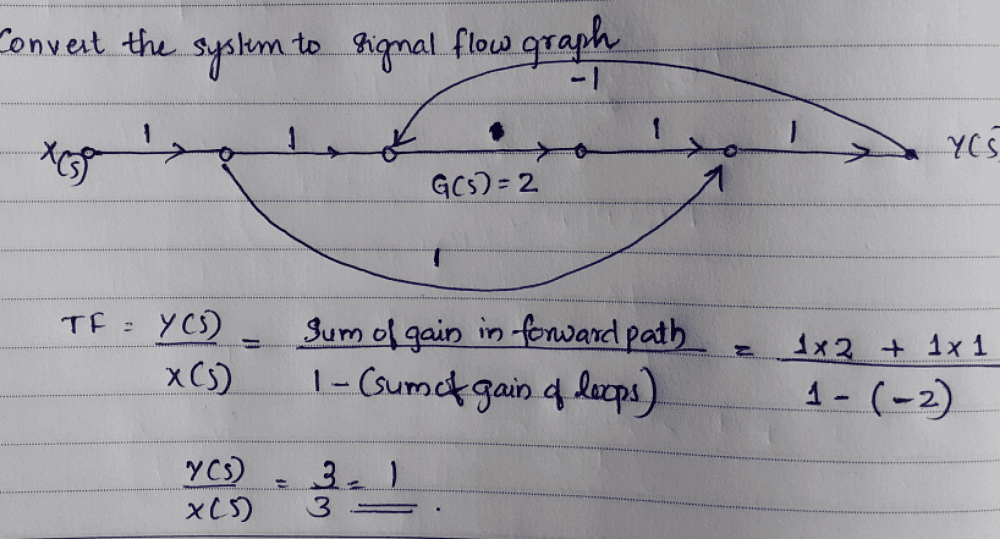 Convert the system to signal flow graph
-1
X(s) 1 1 1 1 Y(s)
G(s) = 2
1
TF = Y(s)/X(s) = Sum of gain in forward path / 1 - (sum of gain of loops) = 1x2 + 1x1 / 1 - (-2)
Y(s)/X(s) = 3/3 = 1.